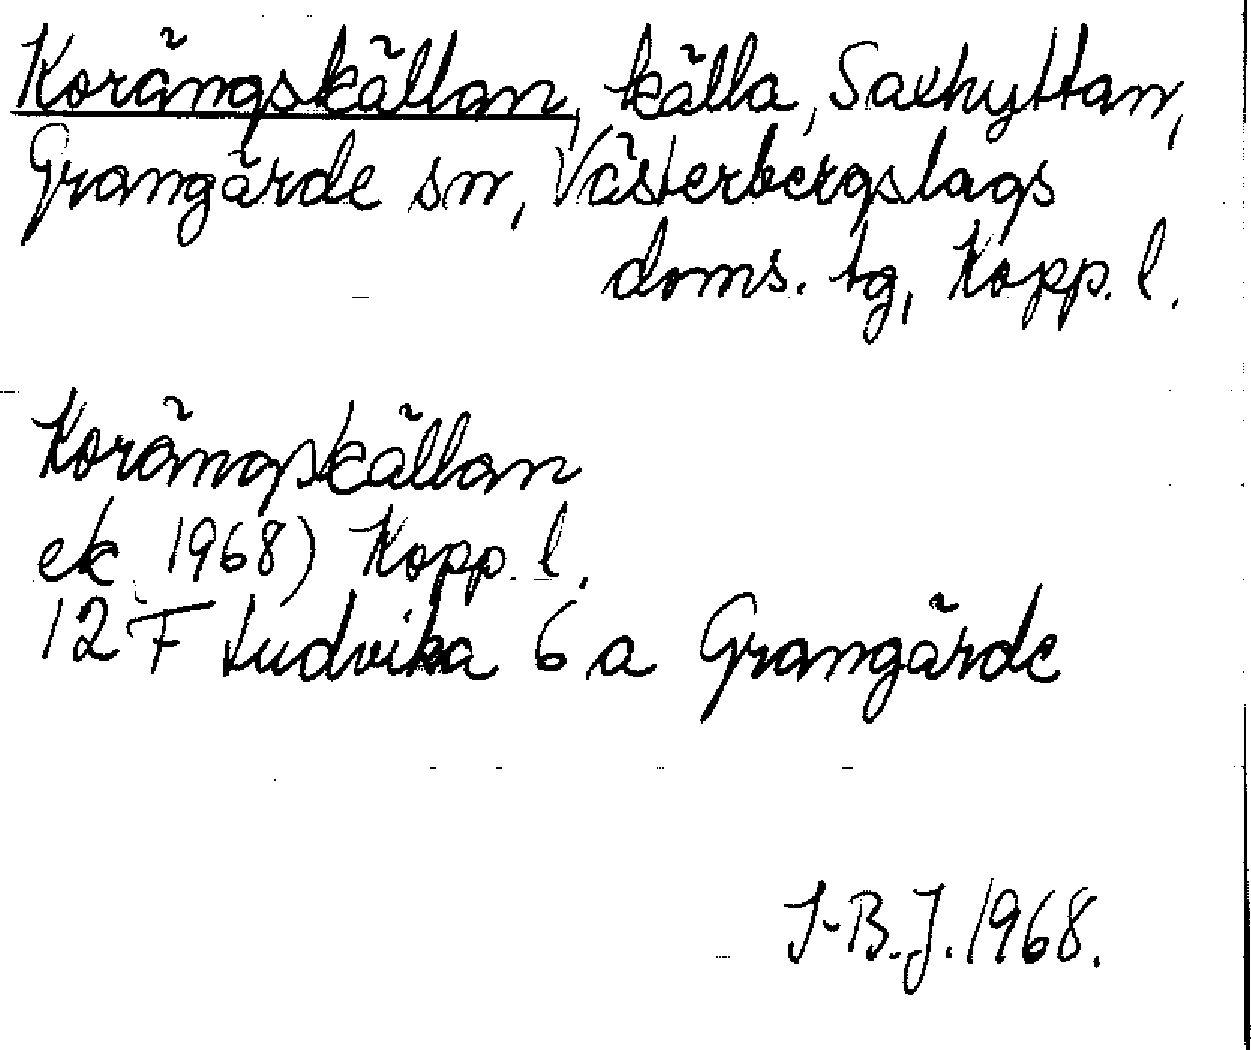 Korängskällan, källa, Saxhyttan,
Grangärde sn, Västerbergslags
doms. tg, Kopp. l.
Korängskällan
ek 1968) Kopp. l.
12 F Ludvika 6 a Grangärde
I-B.J. 1968.